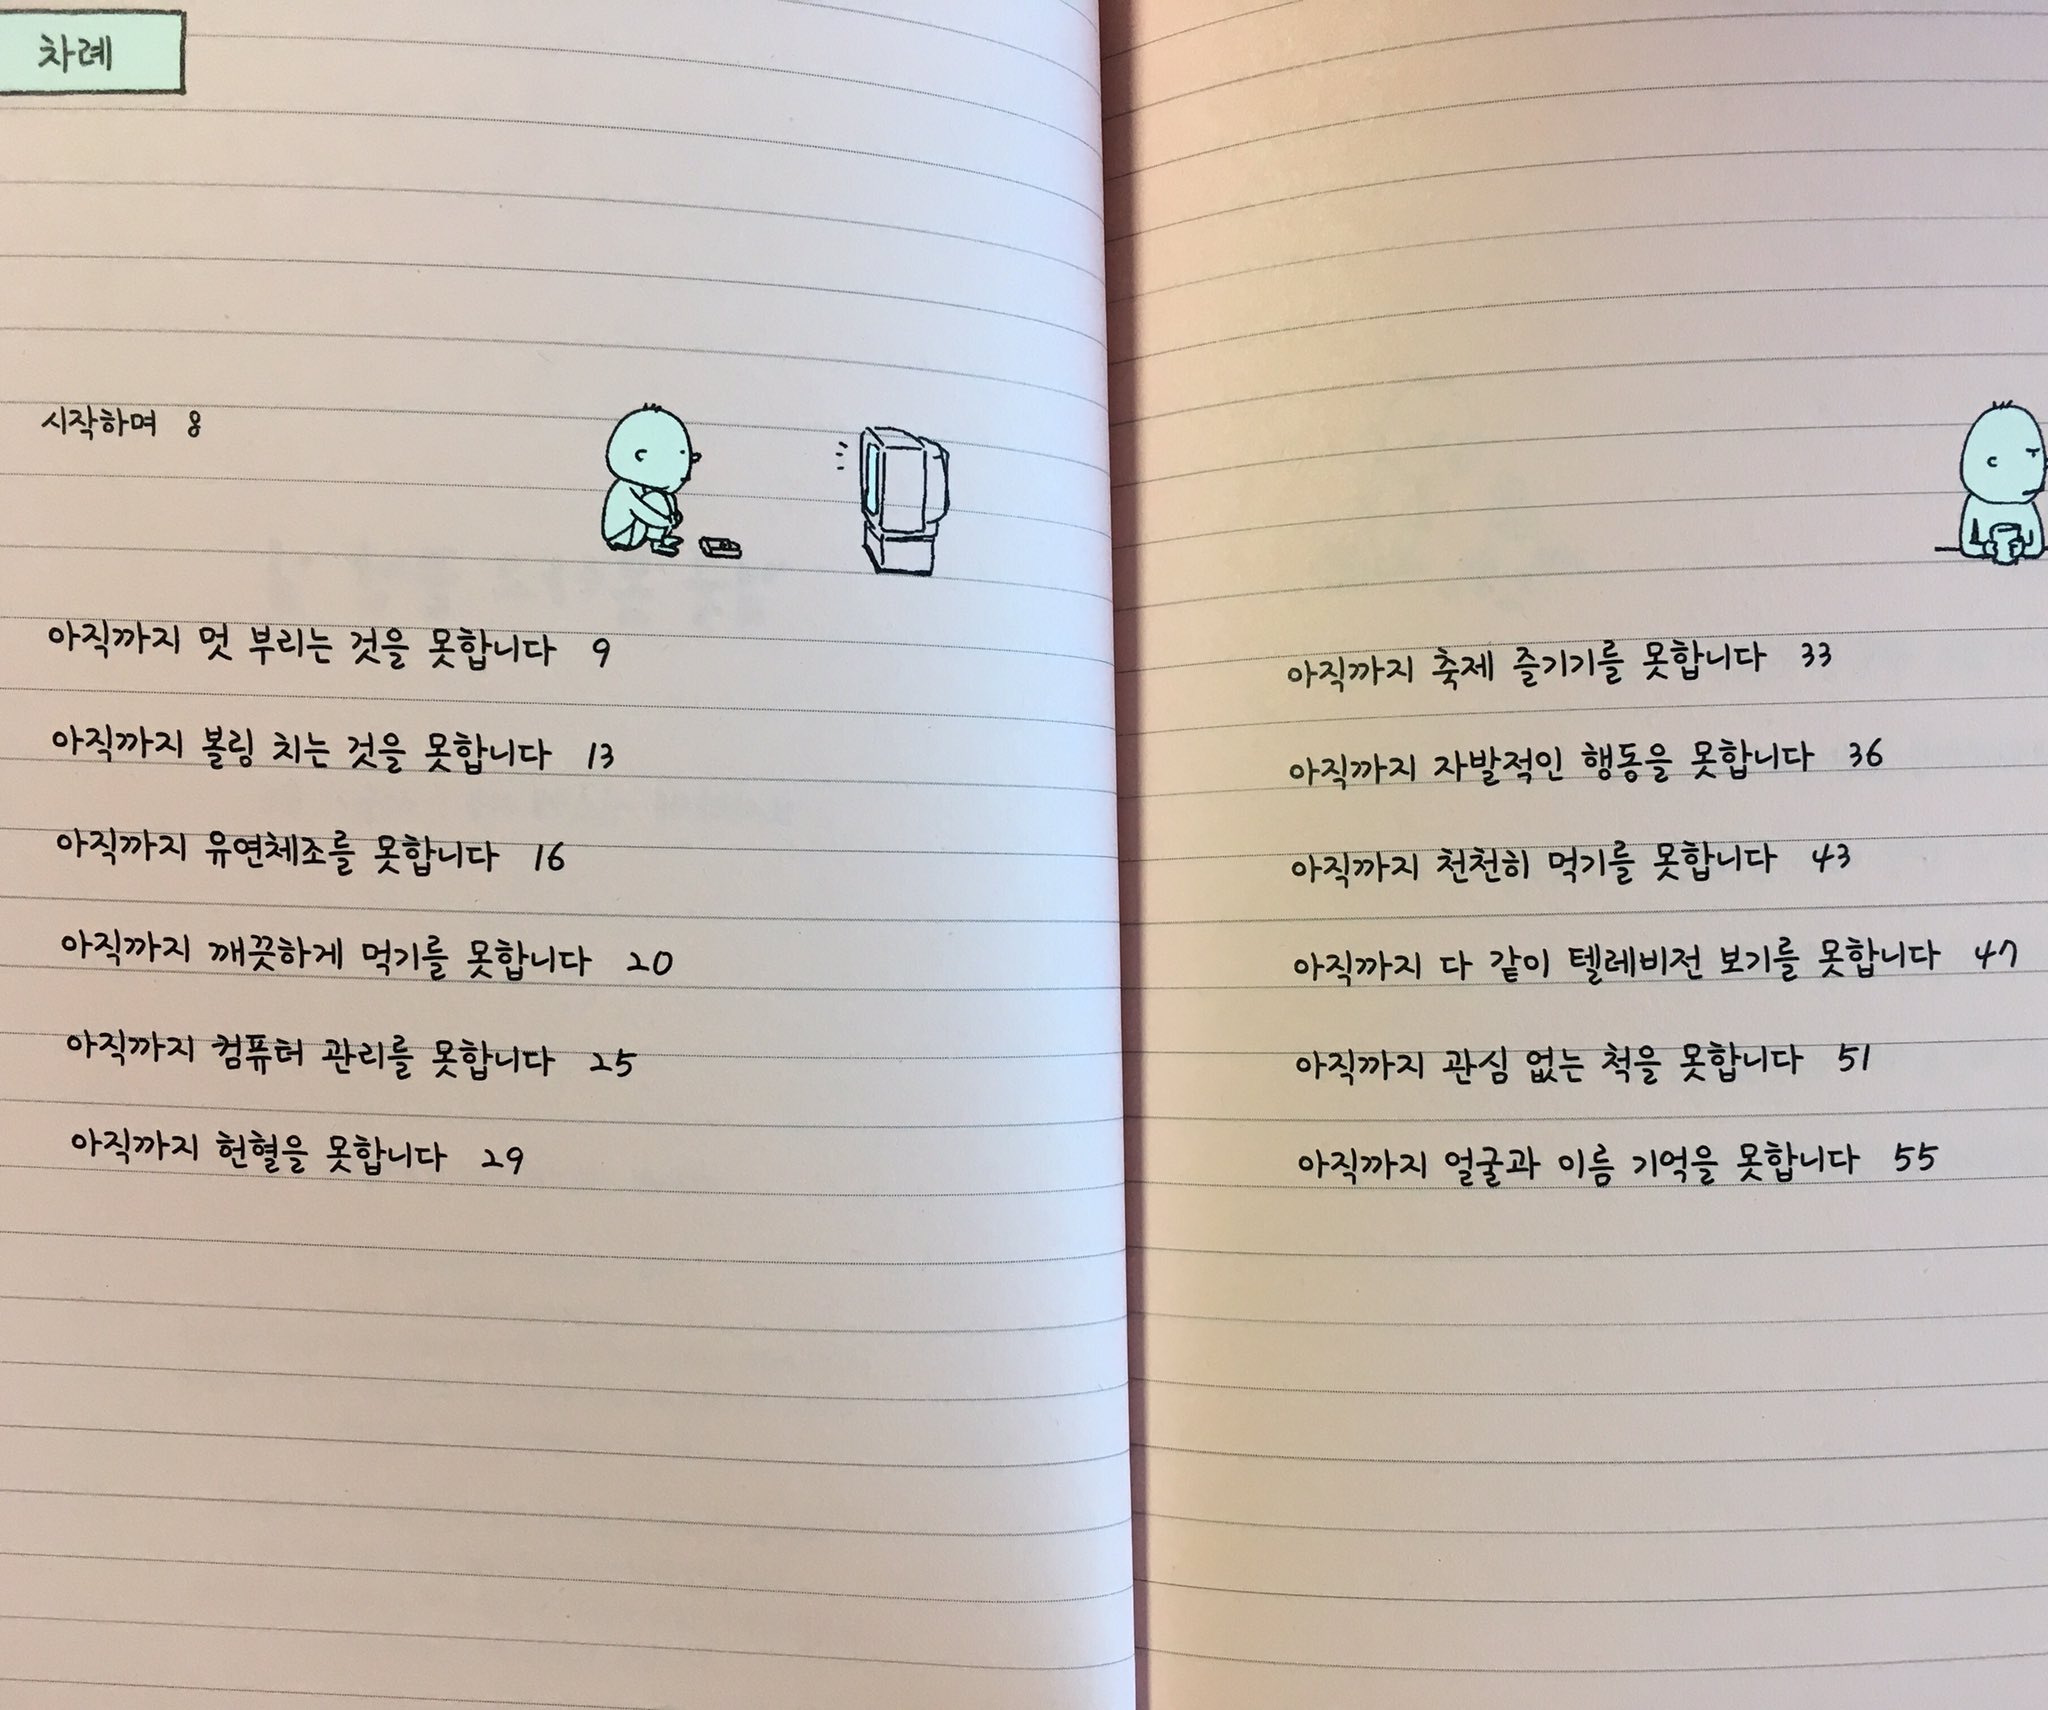 차례
시작하며 8
아직까지 멋 부리는 것을 못합니다 9
아직까지 볼링 치는 것을 못합니다 13
아직까지 유연체조를 못합니다 16
아직까지 깨끗하게 먹기를 못합니다 20
아직까지 컴퓨터 관리를 못합니다 25
아직까지 헌혈을 못합니다 29
아직까지 축제 즐기기를 못합니다 33
아직까지 자발적인 행동을 못합니다 36
아직까지 천천히 먹기를 못합니다 43
아직까지 다 같이 텔레비전 보기를 못합니다 47
아직까지 관심 없는 척을 못합니다 51
아직까지 얼굴과 이름 기억을 못합니다 55